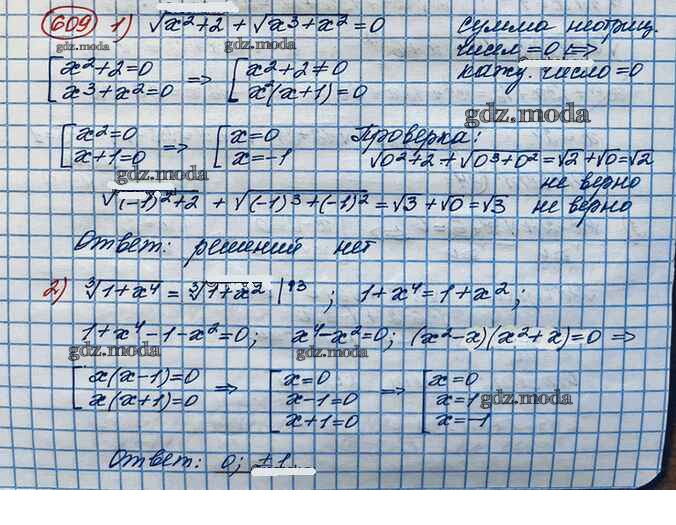 609 1) √x²+2 + √x³+x² = 0
Сумма неотриц.
чисел = 0 <=>
кажд. число = 0
gdz.moda
[ x²+2=0 => [ x²+2≠0
x³+x²=0 x²(x+1)=0
gdz.moda
[ x²=0 => [ x=0
x+1=0 x=-1
Проверка:
√0²+2 + √0³+0² = √2+√0=√2
не верно
gdz.moda
√(-1)²+2 + √(-1)³+(-1)² = √3+√0=√3 не верно
Ответ: решений нет
2) ³√1+x⁴ = ³√1+x² |↑3 ; 1+x⁴=1+x²;
1+x⁴-1-x²=0; x⁴-x²=0; (x²-x)(x²+x)=0 =>
gdz.moda gdz.moda
[ x(x-1)=0 => [ x=0 => [ x=0
x(x+1)=0 x-1=0 x=1
x+1=0 x=-1
gdz.moda
Ответ: 0; ±1